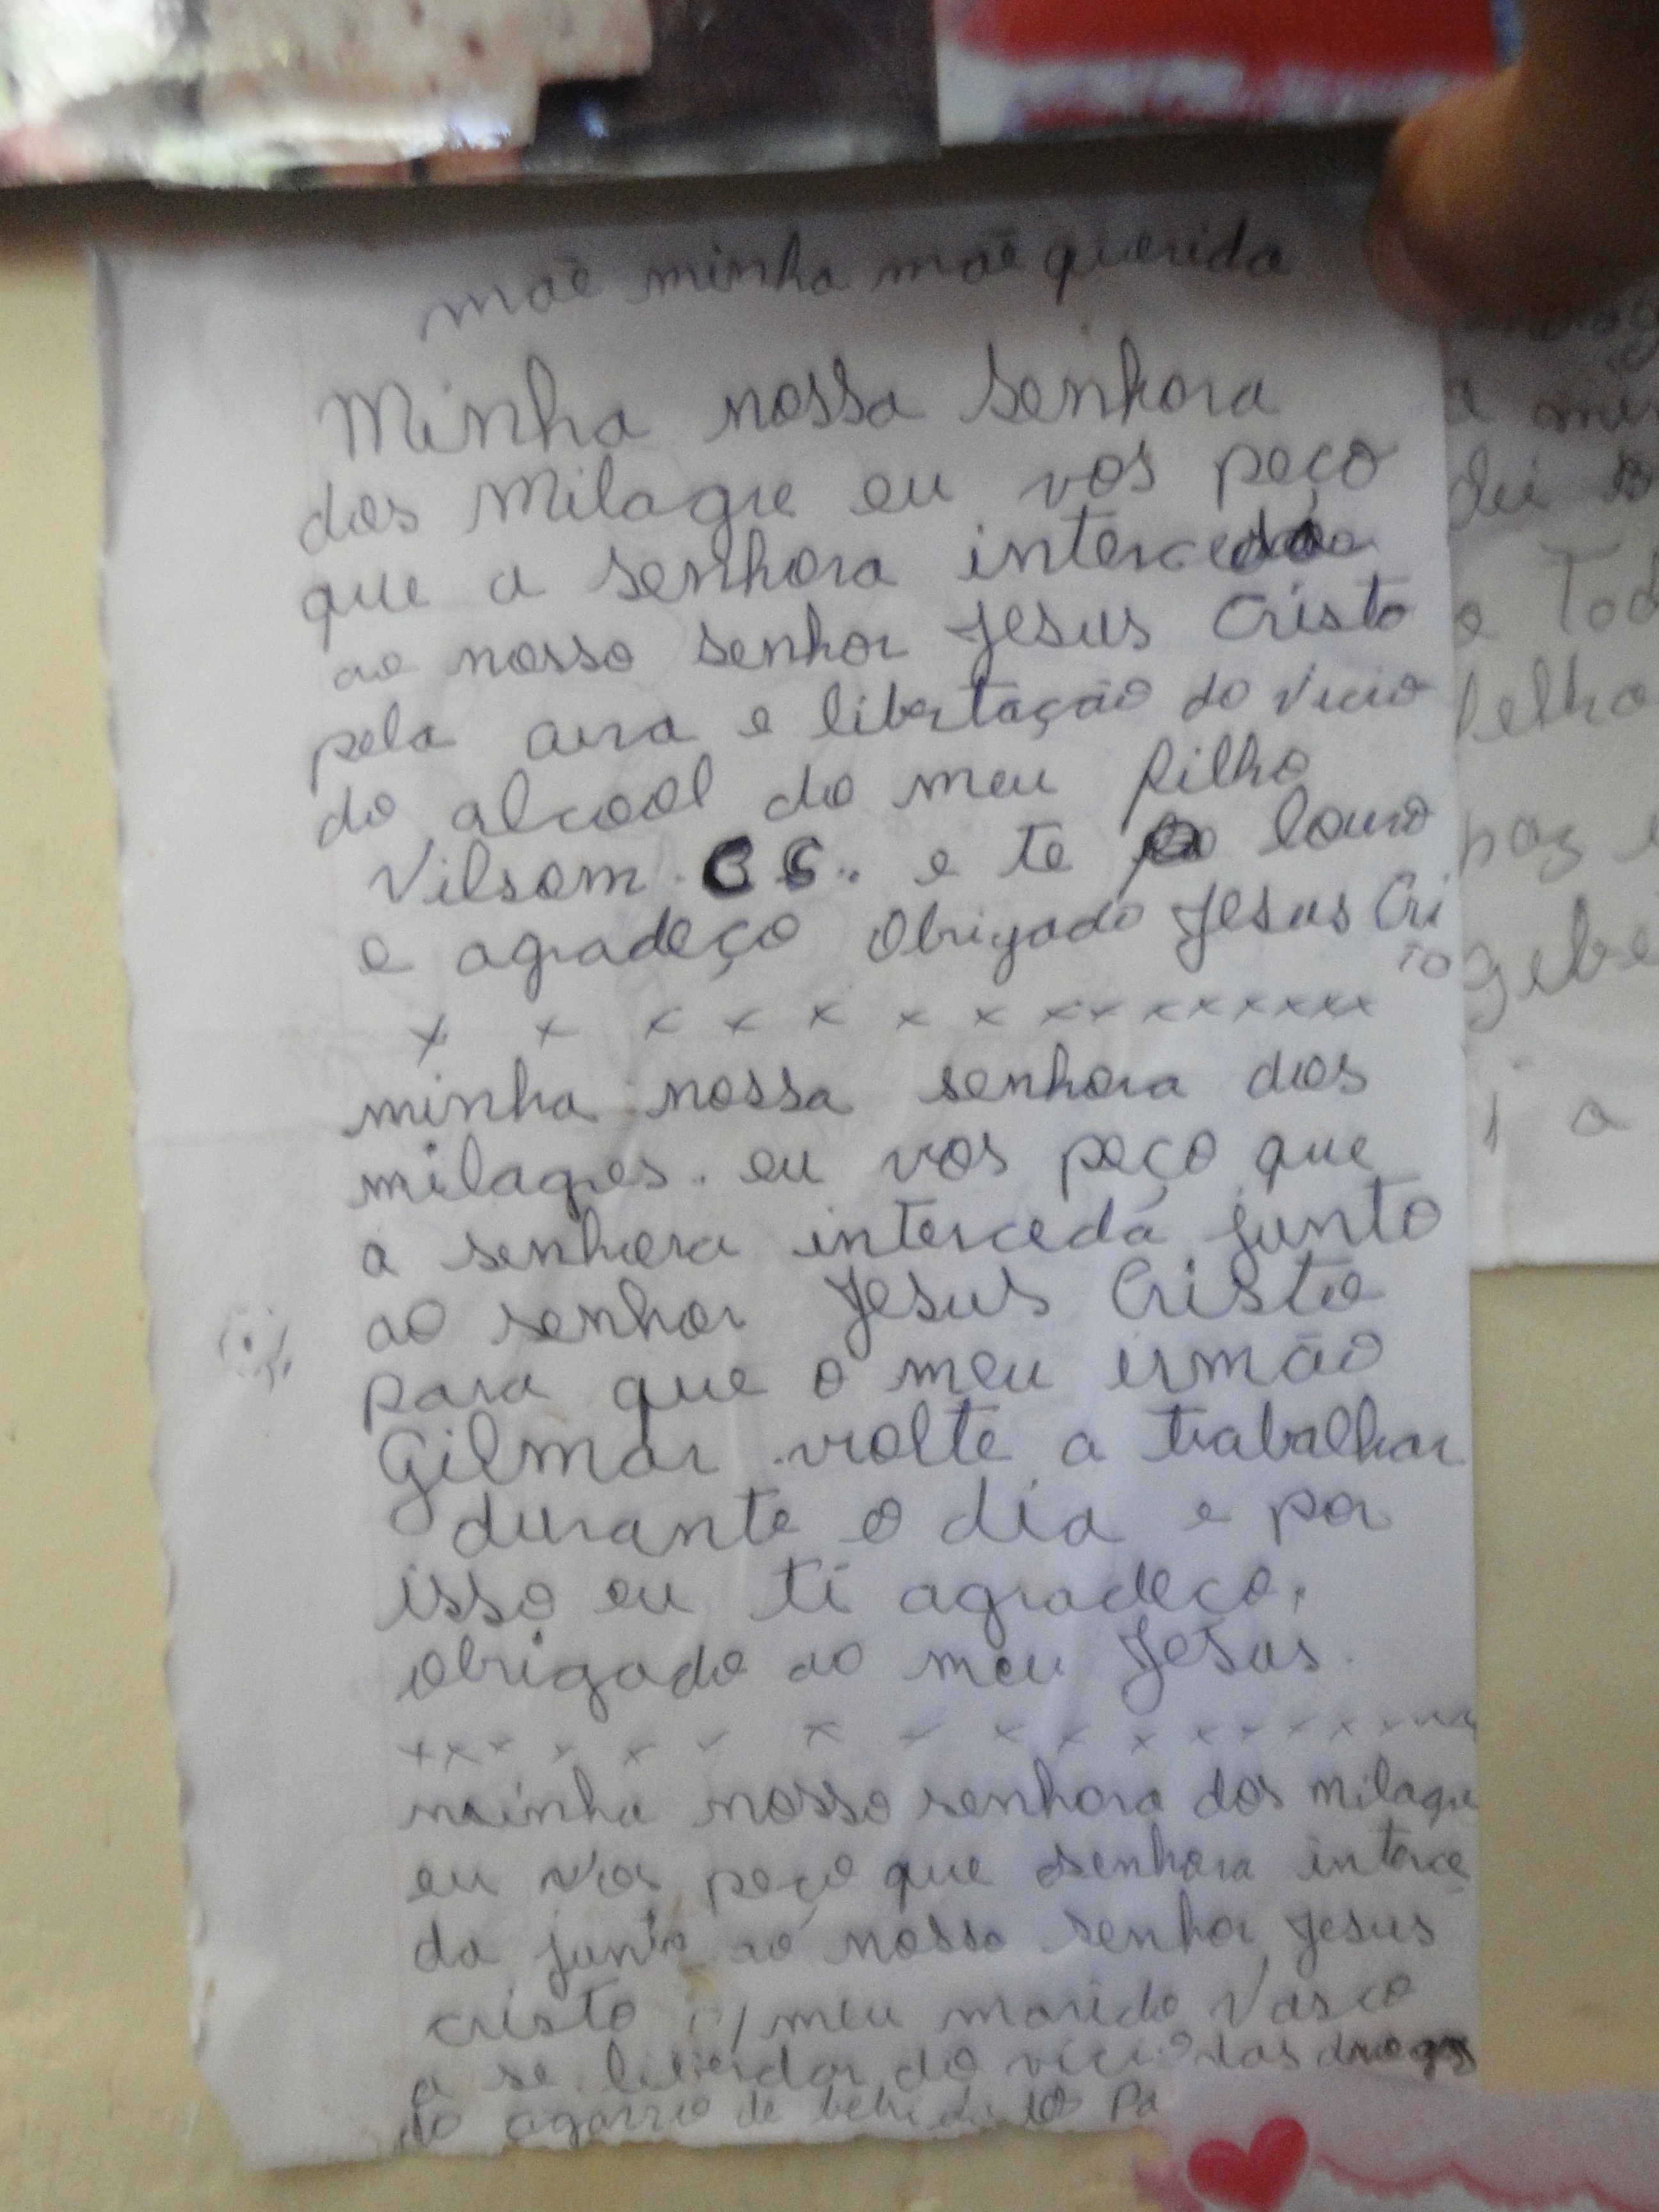 mãe minha mãe querida
Minha nossa senhora
dos Milagre eu vos peço
que a senhora interceda
ao nosso senhor Jesus Cristo
pela cura e libertação do vicio
do alcool do meu filho
Vilsom. C S.. e te louvo
e agradeço Obrigado Jesus Cri
to
x x x x x x x x x x x x x x x
minha nossa senhora dos
milagres. eu vos peço que
a senhora interceda junto
ao senhor Jesus Cristo
para que o meu irmão
Gilmar volte a trabalhar
durante o dia e por
isso eu ti agradeço.
obrigado ao meu Jesus.
x x x x x x x x x x x x x x x
minha nossa senhora dos milagre
eu vos peço que senhora interce
da junto ao nosso senhor Jesus
cristo p/ meu marido Vasco
a se libertar do vicio das drogas
do agarro de bebida
a
dei
o Tod
paz
gebe
a